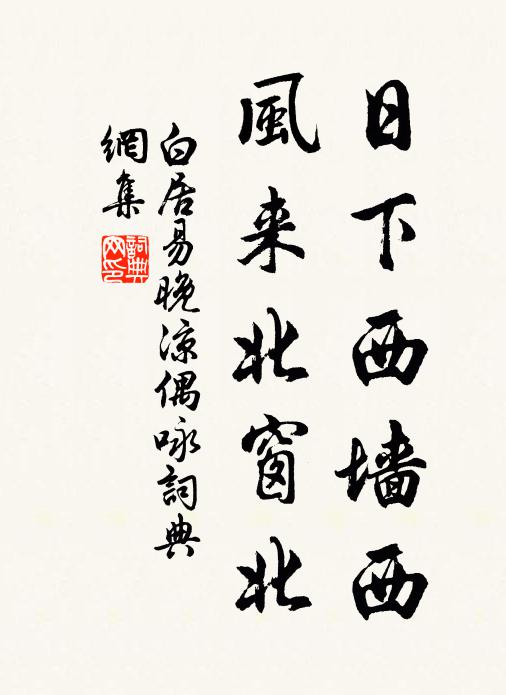 日下西墙西
風来北窗北
白居易晚涼偶咏詞典
網集
詞典
网印